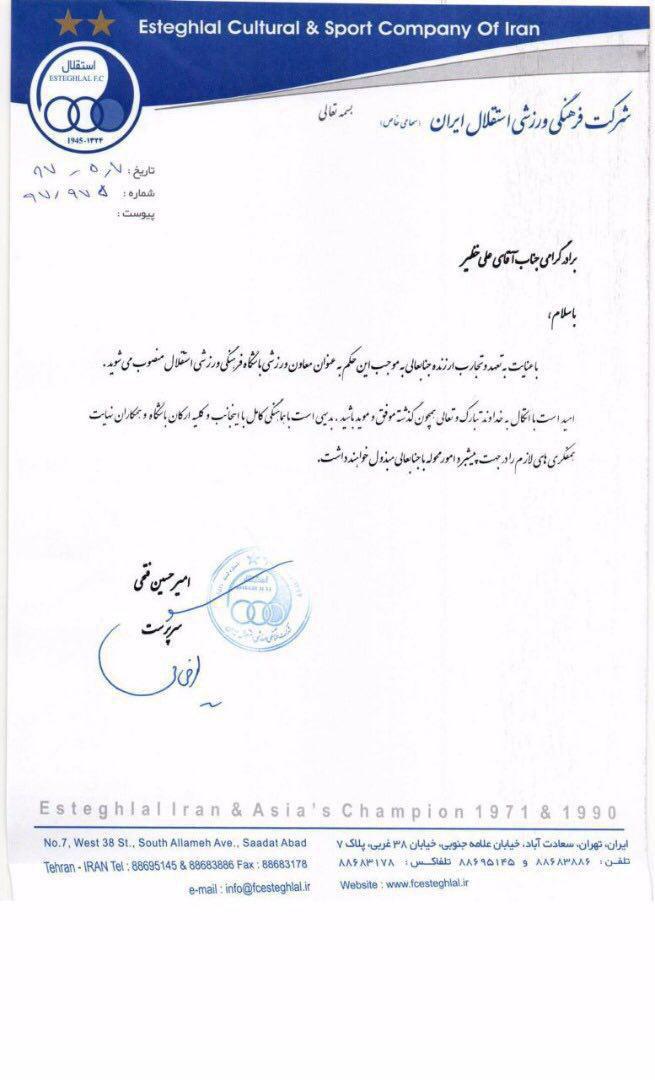 Esteghlal Cultural & Sport Company Of Iran
استقلال
ESTEGHLAL F.C
1945-۱۳۲۴
شرکت فرهنگی ورزشی استقلال ایران (سهامی خاص)
بسمه تعالی
تاریخ : ۹۷ - ۵,۷
شماره : ۹۷/۹۷۵
پیوست :
برادر گرامی جناب آقای علی خطیر
باسلام،
با عنایت به تعهد و تجارب ارزنده جنابعالی به موجب این حکم به عنوان معاون ورزشی باشگاه فرهنگی ورزشی استقلال منصوب می شوید .
امید است با اتکال به خداوند تبارک و تعالی همچون گذشته موفق و موید باشید . بدیهی است با هماهنگی کامل با اینجانب و کلیه ارکان باشگاه و همکاران نهایت
همفکری های لازم را در جهت پیشبرد امور محوله با جنابعالی مبذول خواهند داشت.
امیرحسین فتحی
سرپرست
استقلال
Esteghlal Iran & Asia's Champion 1971 & 1990
ایران، تهران، سعادت آباد، خیابان علامه جنوبی، خیابان ۳۸ غربی، پلاک ۷
تلفن : ۸۸۶۸۳۸۸۶ و ۸۸۶۹۵۱۴۵ تلفاکس : ۸۸۶۸۳۱۷۸
Website : www.fcesteghlal.ir
No.7, West 38 St., South Allameh Ave., Saadat Abad
Tehran - IRAN Tel : 88695145 & 88683886 Fax : 88683178
e-mail : info@fcesteghlal.ir